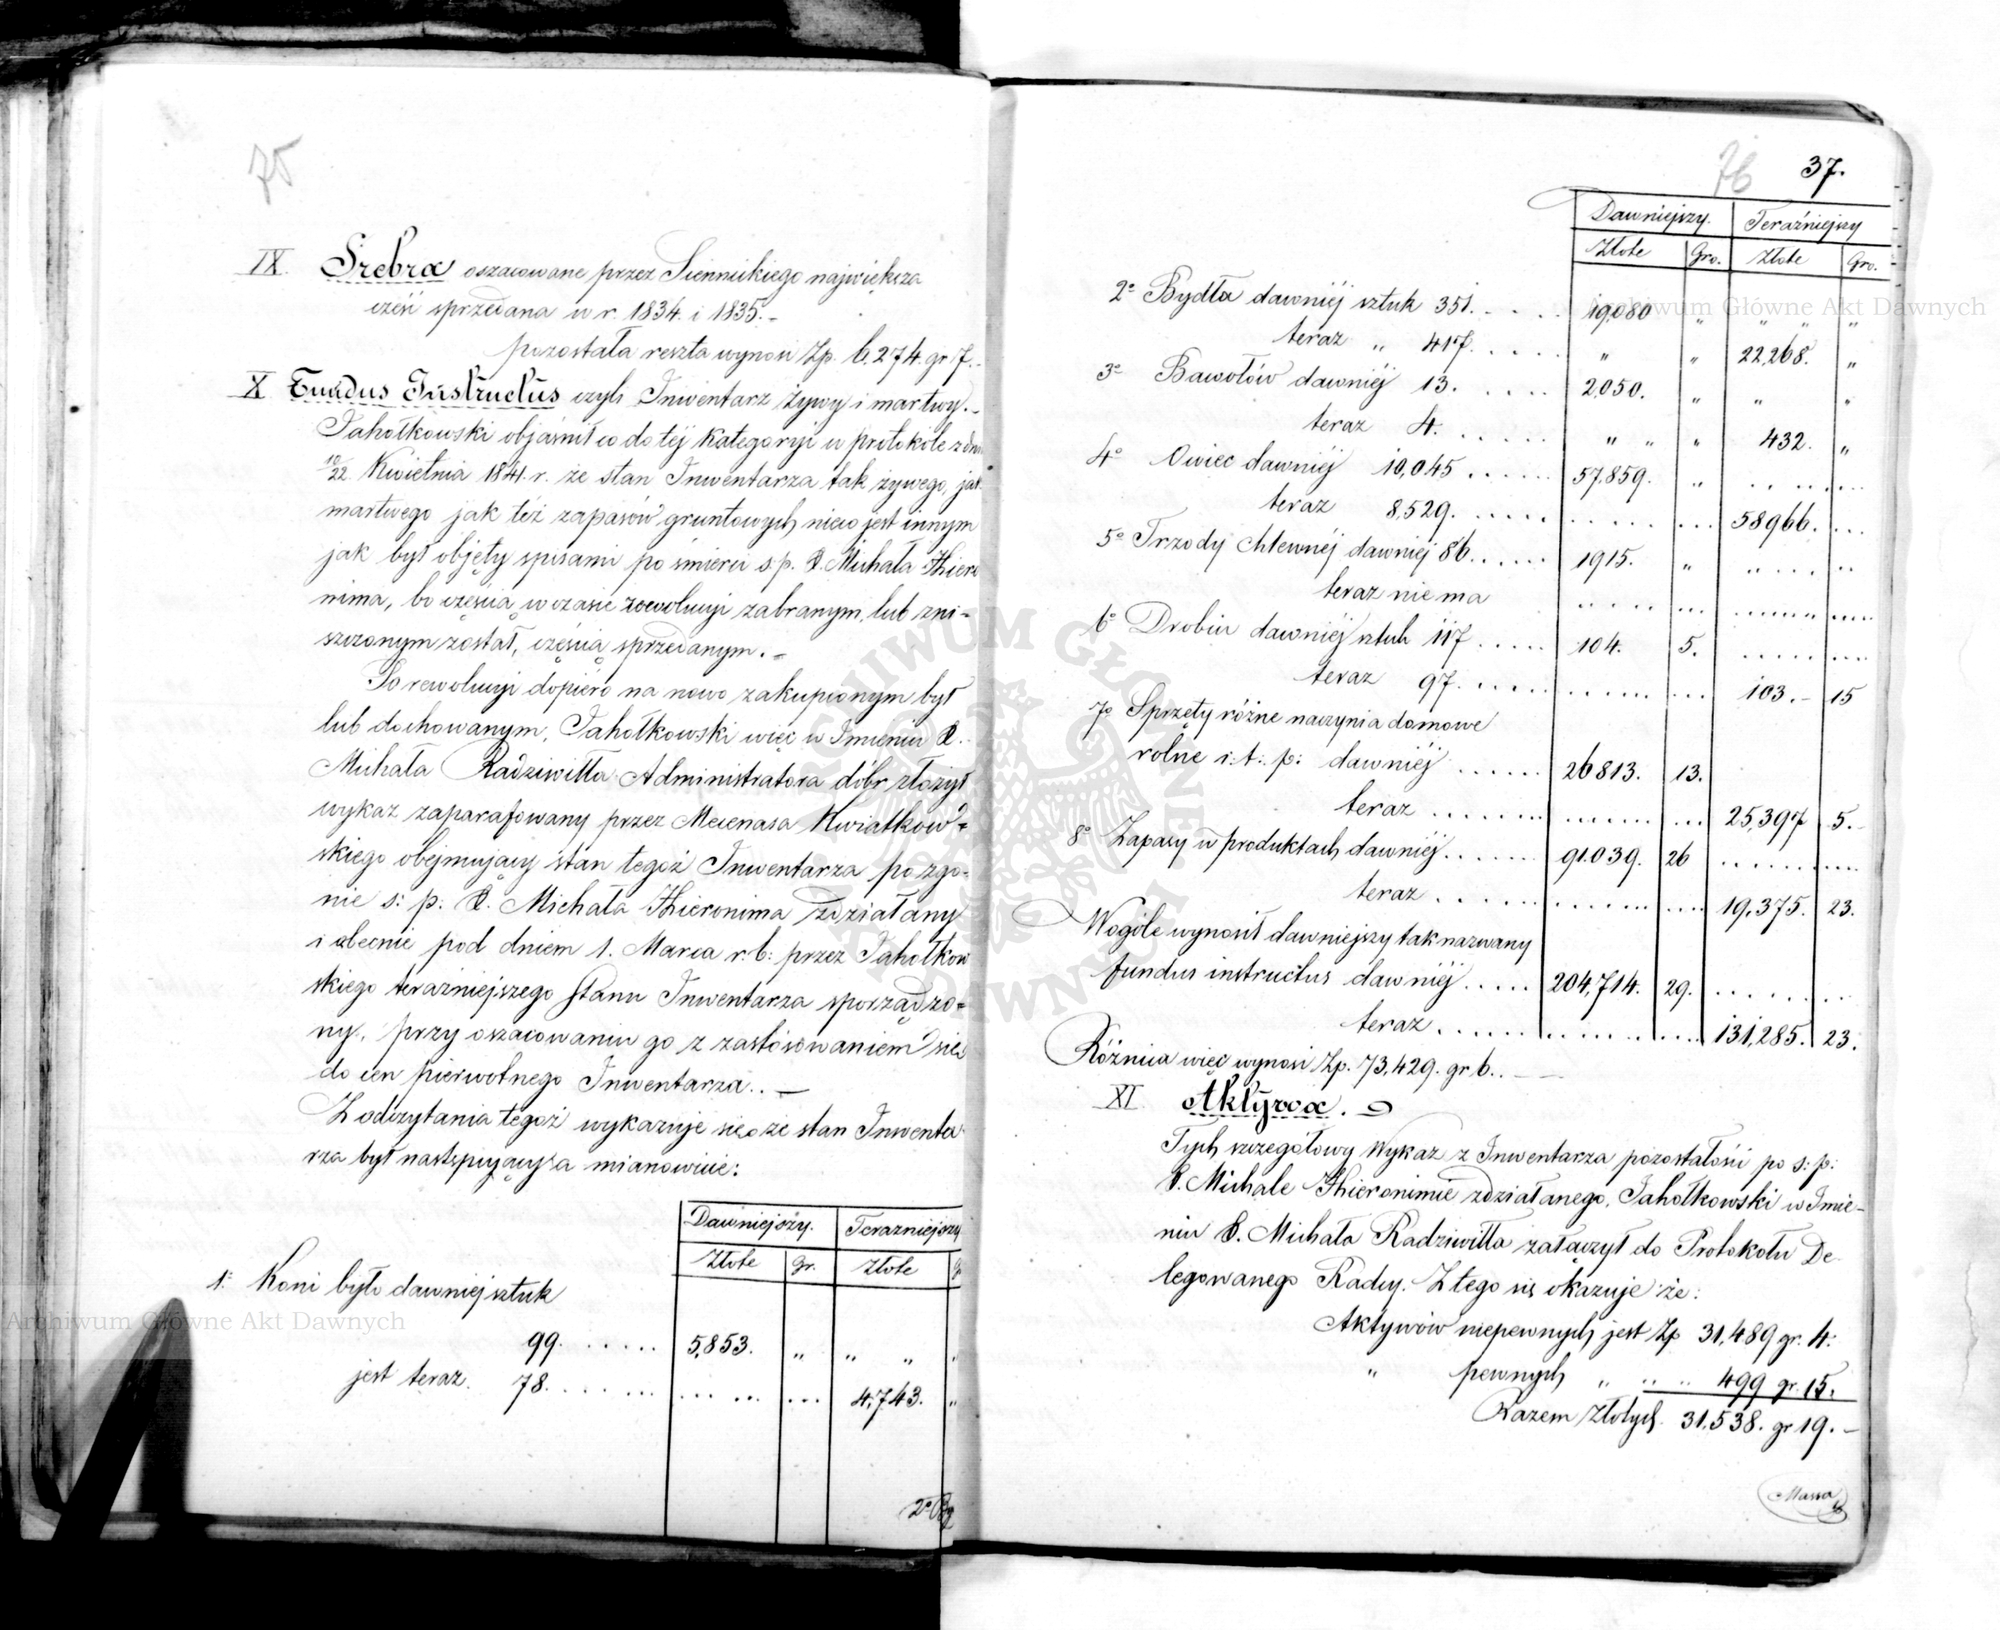 75
IX. Srebra oszacowane przez Siennickiego największa
cześć sprzedana w r. 1834. i 1835. –
pozostała reszta wynosi Zp. 6.274 gr 7. –
X Fundus Instructus czyli Inwentarz żywy i martwy. –
Jahołkowski objaśnił co do téj Kategoryi w protokole z dnia
10/22. Kwietnia 1841. r. że stan Inwentarza tak żywego, jak
martwego jak też zapasów gruntowych nieco jest innym
jak był objęty spisami po śmierci s. p. X. Michała Hiero
nima, bo częścią w czasie rewolucyi zabranym, lub zni=
szczonym został, częścią sprzedanym. –
Po rewolucyi dopiero na nowo zakupionym był
lub dochowanym, Jahołkowski więc w Imieniu X.
Michała Radziwiłła Administratora dóbr złożył
wykaz zaparafowany przez Mecenasa Kwiatkow=
skiego obejmujący stan tegoż Inwentarza po zgo=
nie s: p: X. Michała Hieronima zdziałany
i obecnie pod dniem 1. Marca r. b: przez Jahołkow
skiego teraźniejszego stanu Inwentarza sporządzo=
ny, przy oszacowaniu go z zastósowaniem się
do cen pierwotnego Inwentarza. . —
Z odczytania tegoż wykazuje się że stan Inwenta
rza był następujący a mianowicie:
Dawniejszy. Teraźniejszy
Złote Gr. Złote G
1: Koni było dawniej sztuk
99. . . . . . 5,853. „ „ „ „
jest teraz. 78. . . . . . . . . . . . . . . 4,743. „
2o By
76 37.
Dawniejszy. Teraźniejszy
Złote Gro. Złote Gro.
2o Bydła dawniéj sztuk 351. . . . . 19,080 „ „ „ „
teraz „ 417. . . . . . „ „ 22,268. „
3o Bawołów dawniéj 13. . . . . . 2050. „ „ „
teraz 4. . . . . . . „ „ „ 432. „
4o Owiec dawniéj 10,045 . . . . . . 57.859. „ . . . . . . .
teraz 8,529. . . . . . . . . . . . . . . 58966. . . .
5o Trzody chlewnéj dawniej 86. . . . . . 1915. „ . . . . . . .
teraz nie ma . . . . . . . . . . . . . . . . . . .
6o Drobiu dawniéj sztuk 117 . . . . . 104. 5. . . . . . . . . .
teraz 97. . . . . . . . . . . . . . . . 103. – 15
7o Sprzęty różne naczynia domowe
rolne i: t: p: dawniéj . . . . . . 26813. 13.
teraz . . . . . . . . . . . . . . . . 25,397 5. –
8o Zapasy w produktach dawniéj. . . . . . 91.039. 26 . . . . . . . . . .
teraz . . . . . . . . . . . . . . . . . 19,375. 23.
Wogóle wynosił dawniejszy tak nazwany
fundus instructus dawniéj. . . . . 204,714. 29. . . . . . . . .
teraz . . . . . . . . . . . . . . . . . 131,285. 23.
Różnica więc wynosi Zp. 73,429. gr 6. . — —
XI Aktywa. –
Tych szczegółowy Wykaz z Inwentarza pozostałości po s: p:
X. Michale Hieronimie zdziałanego, Jahołkowski w Imie–
niu X. Michała Radziwiłła załączył do Protokołu De
legowanego Rady. Z tego się okazuje że:
Aktywów niepewnych jest Zp 31,489 gr. 4:
„ pewnych „ „ „ 499 gr. 15.
Razem Złotych. 31,538. gr 19. –
Massa
Archiwum Główne Akt Dawnych
Archiwum Główne Akt Dawnych
ARCHIWUM GŁÓWNE AKT DAWNYCH